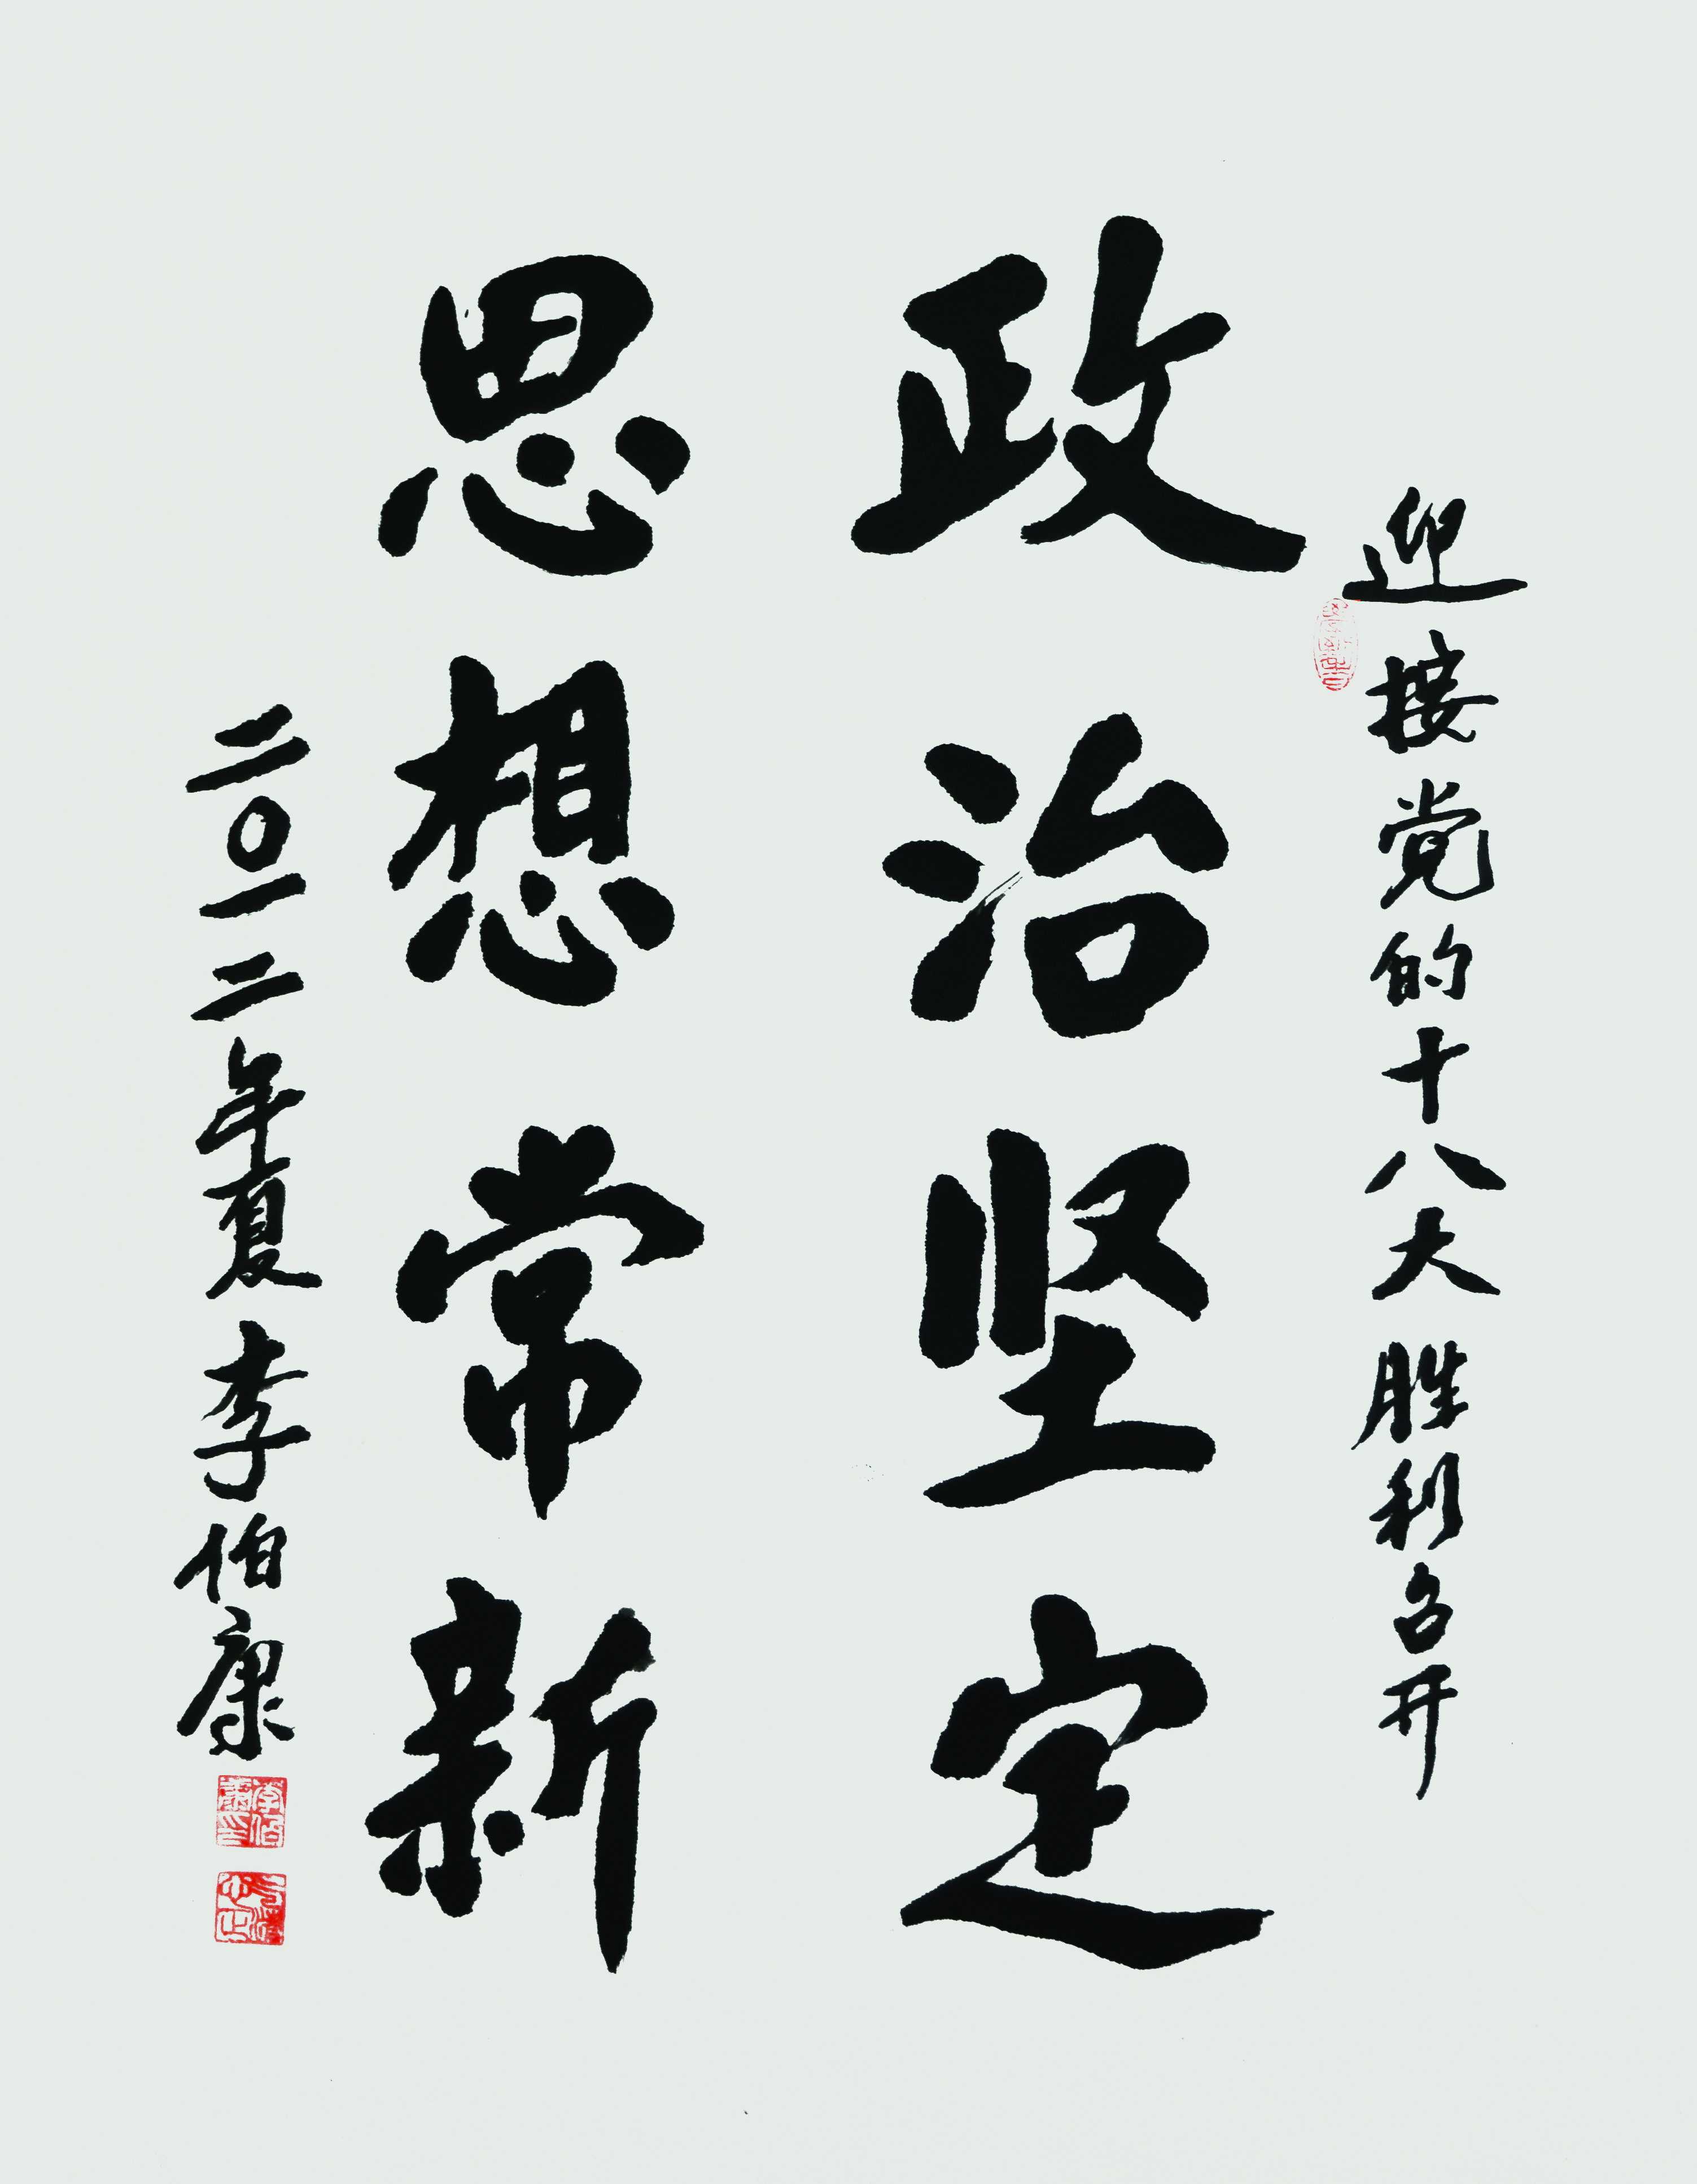 迎接党的十八大胜利召开
政治坚定
思想常新
二〇一二年夏 李伯康